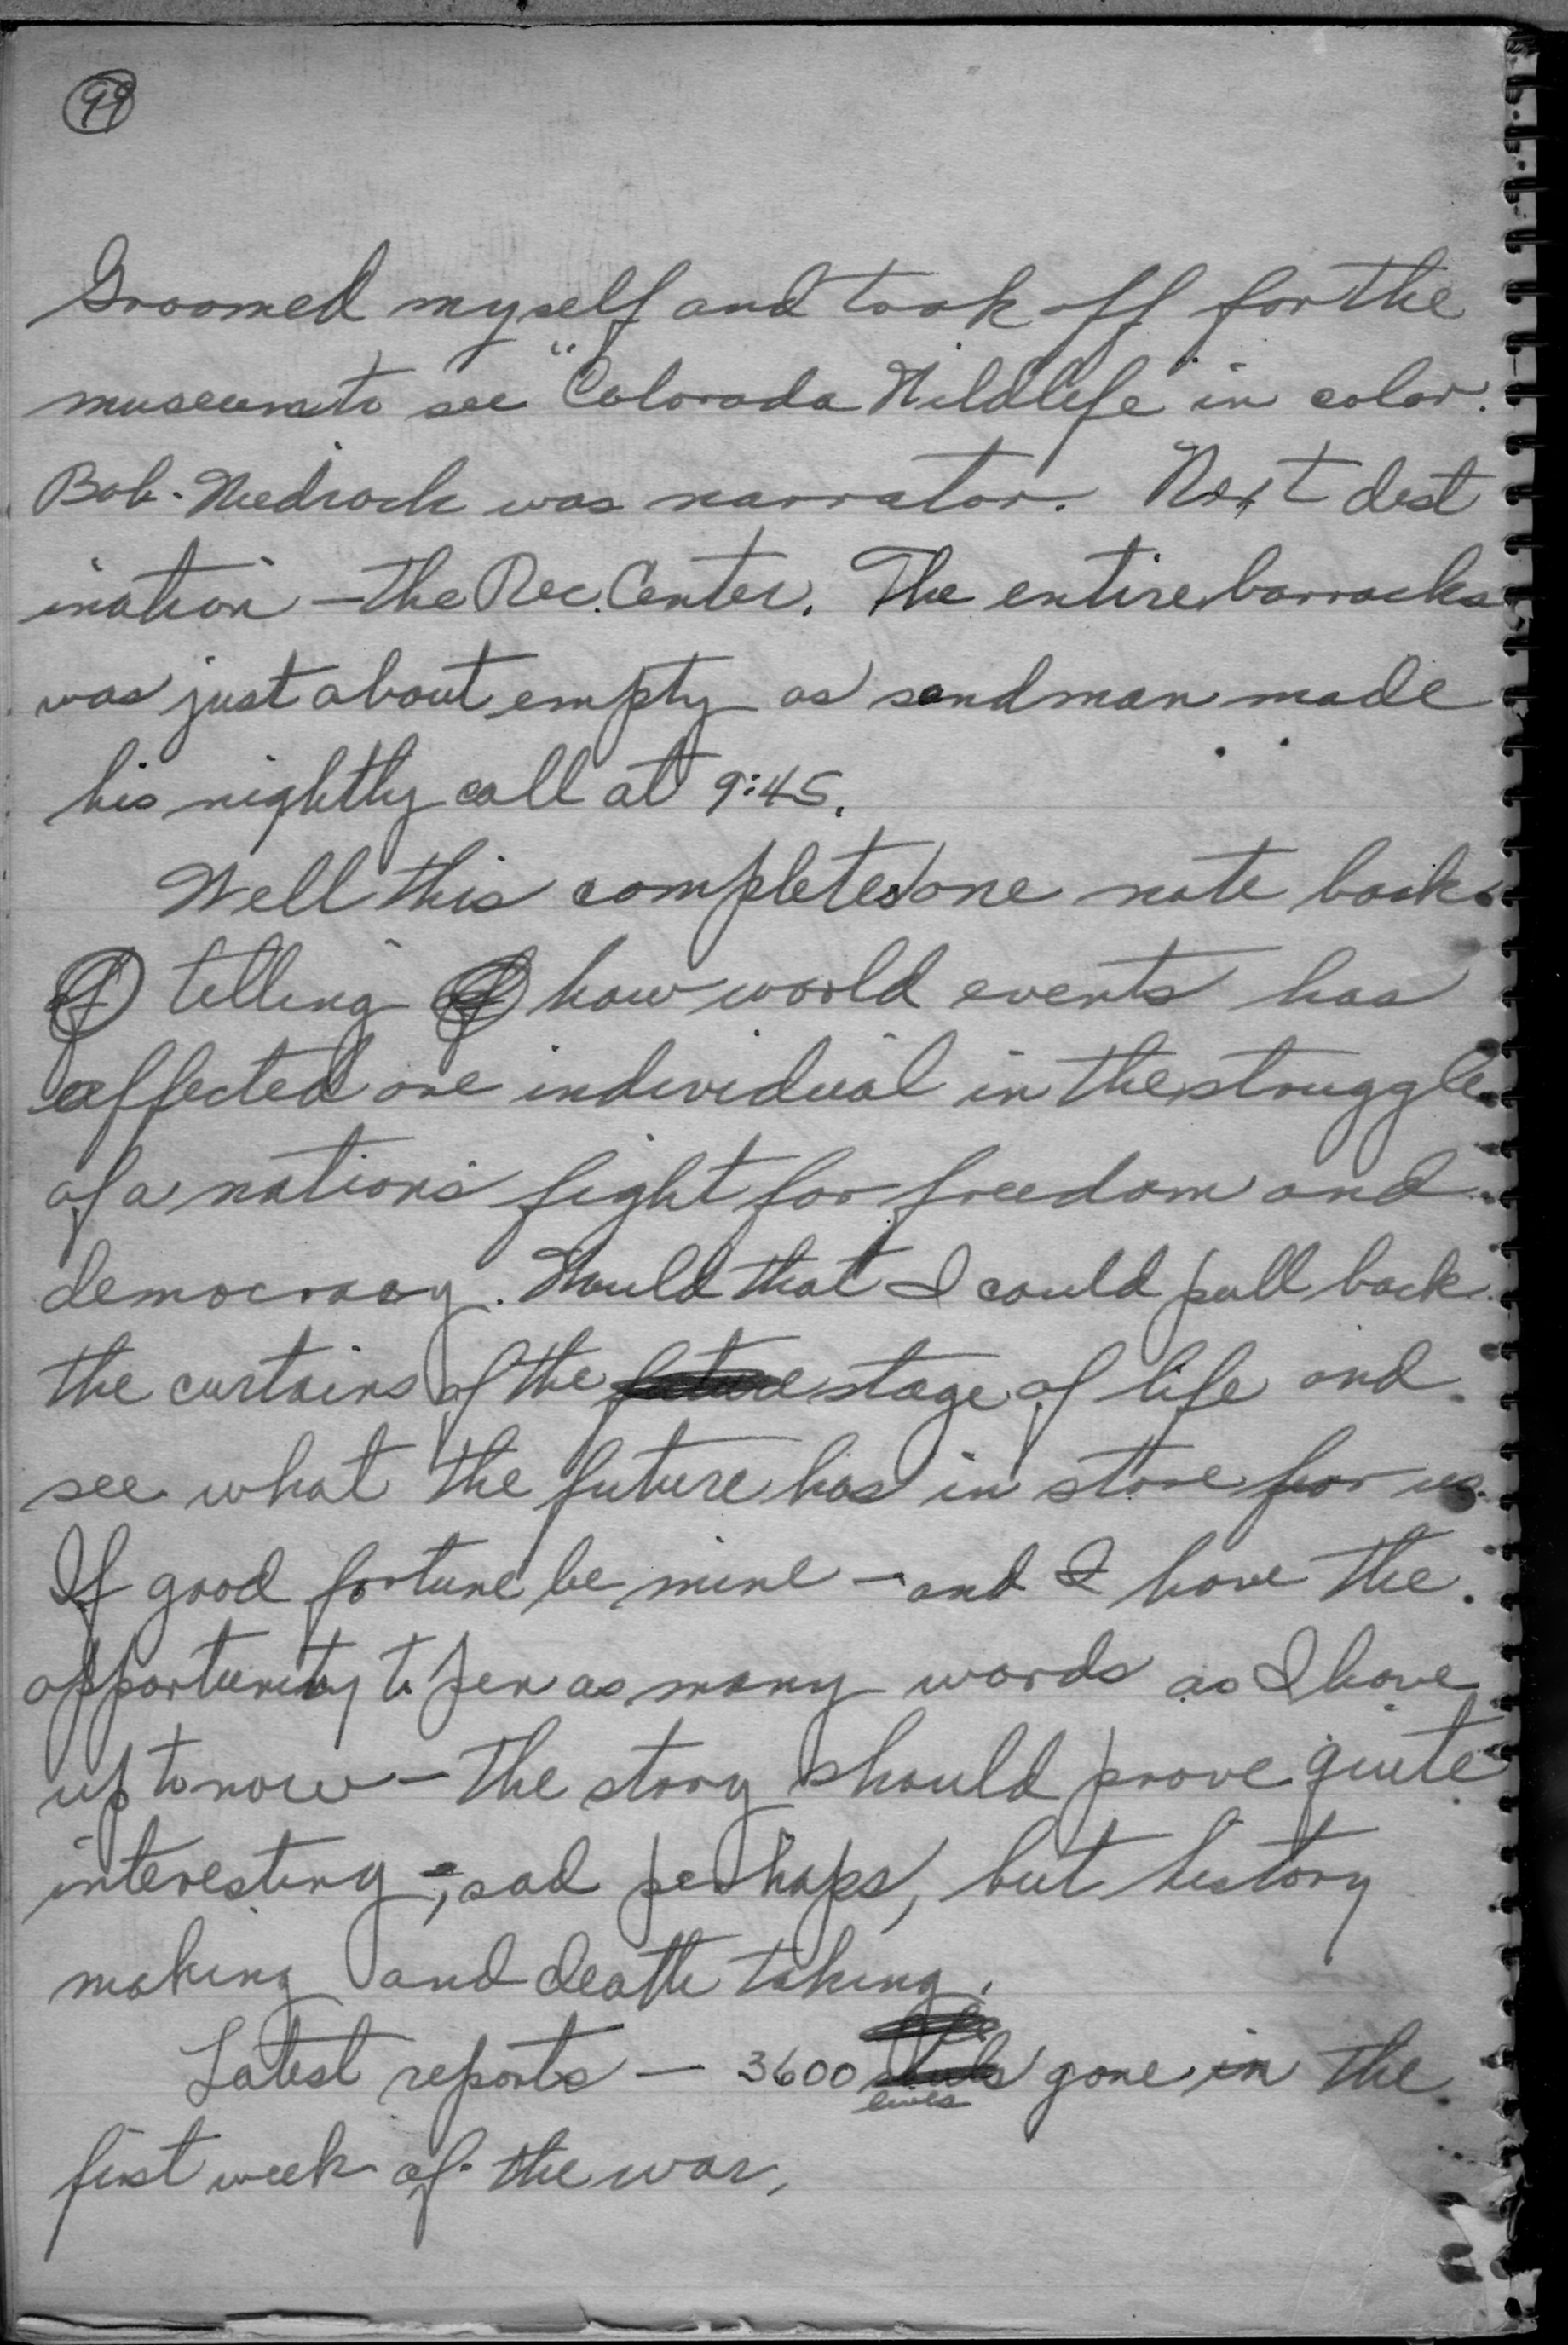 99
Groomed myself and took off for the
museum to see "Colorado Wildlife" in color.
Bob was narrator. Next dest
ination — the Rec. Center. The entire barracks
was just about empty as sandman made
his nightly call at 9:45.
Well this completes one note book
telling how world events has
affected one individual in the struggle
of a nation's fight for freedom and
democracy. Would that I could pull back
the curtains of the future stage of life and
see what the future has in store for us.
If good fortune be mine — and I have the
opportunity to pen as many words as I have
up to now — the story should prove quite
interesting, sad perhaps, but history
making and death taking.
Latest reports — 3600 lives gone in the
first week of the war.